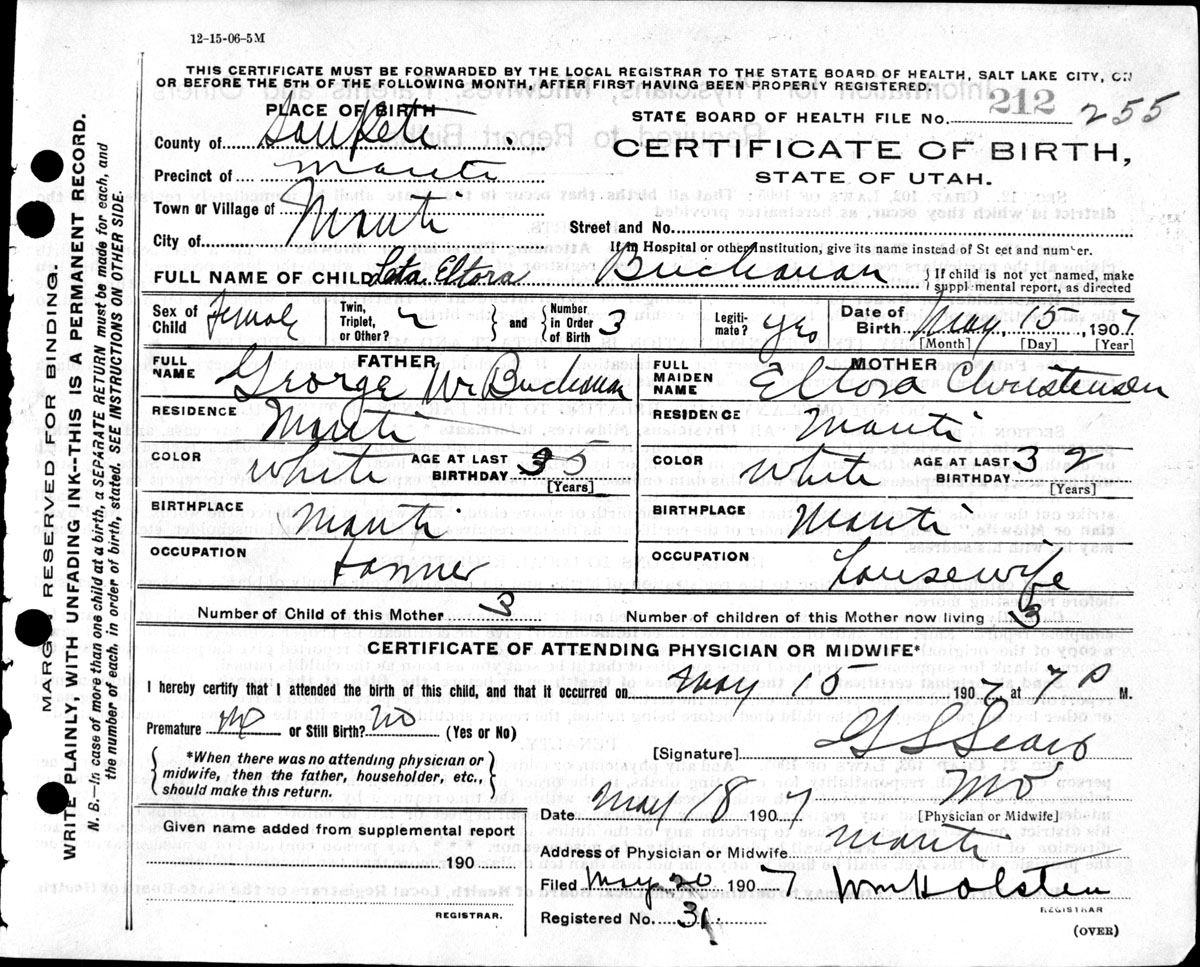 12-15-06-5M
THIS CERTIFICATE MUST BE FORWARDED BY THE LOCAL REGISTRAR TO THE STATE BOARD OF HEALTH, SALT LAKE CITY, ON
OR BEFORE THE 5TH OF THE FOLLOWING MONTH, AFTER FIRST HAVING BEEN PROPERLY REGISTERED.
PLACE OF BIRTH
STATE BOARD OF HEALTH FILE NO. 212 255
County of Sanpete
CERTIFICATE OF BIRTH,
STATE OF UTAH.
Precinct of Manti
Town or Village of Manti
City of
Street and No.
If in Hospital or other Institution, give its name instead of St eet and number.
FULL NAME OF CHILD Leta Eltora Buchanan { If child is not yet named, make supplemental report, as directed
Sex of Child Female
Twin, Triplet, or Other? } and { Number in Order of Birth 3
Legiti-mate? Yes
Date of Birth May 15 1907
[Month] [Day] [Year]
FATHER
FULL NAME George W Buchanan
RESIDENCE Manti
COLOR White AGE AT LAST BIRTHDAY 35 [Years]
BIRTHPLACE Manti
OCCUPATION Farmer
MOTHER
FULL MAIDEN NAME Eltora Christensen
RESIDENCE Manti
COLOR White AGE AT LAST BIRTHDAY 32 [Years]
BIRTHPLACE Manti
OCCUPATION Housewife
Number of Child of this Mother 3 Number of children of this Mother now living 3
CERTIFICATE OF ATTENDING PHYSICIAN OR MIDWIFE*
I hereby certify that I attended the birth of this child, and that it occurred on May 15 1907 at 7 P M.
Premature No or Still Birth? No (Yes or No)
*When there was no attending physician or midwife, then the father, householder, etc., should make this return.
[Signature] G L Sears
MD
[Physician or Midwife]
Date May 18 1907
Address of Physician or Midwife Manti
Given name added from supplemental report
190
REGISTRAR.
Filed May 20 1907 Wm Holsten
REGISTRAR
Registered No. 31
(OVER)
MARGIN RESERVED FOR BINDING.
WRITE PLAINLY, WITH UNFADING INK--THIS IS A PERMANENT RECORD.
N. B.—In case of more than one child at a birth, a SEPARATE RETURN must be made for each, and
the number of each, in order of birth, stated. SEE INSTRUCTIONS ON OTHER SIDE.